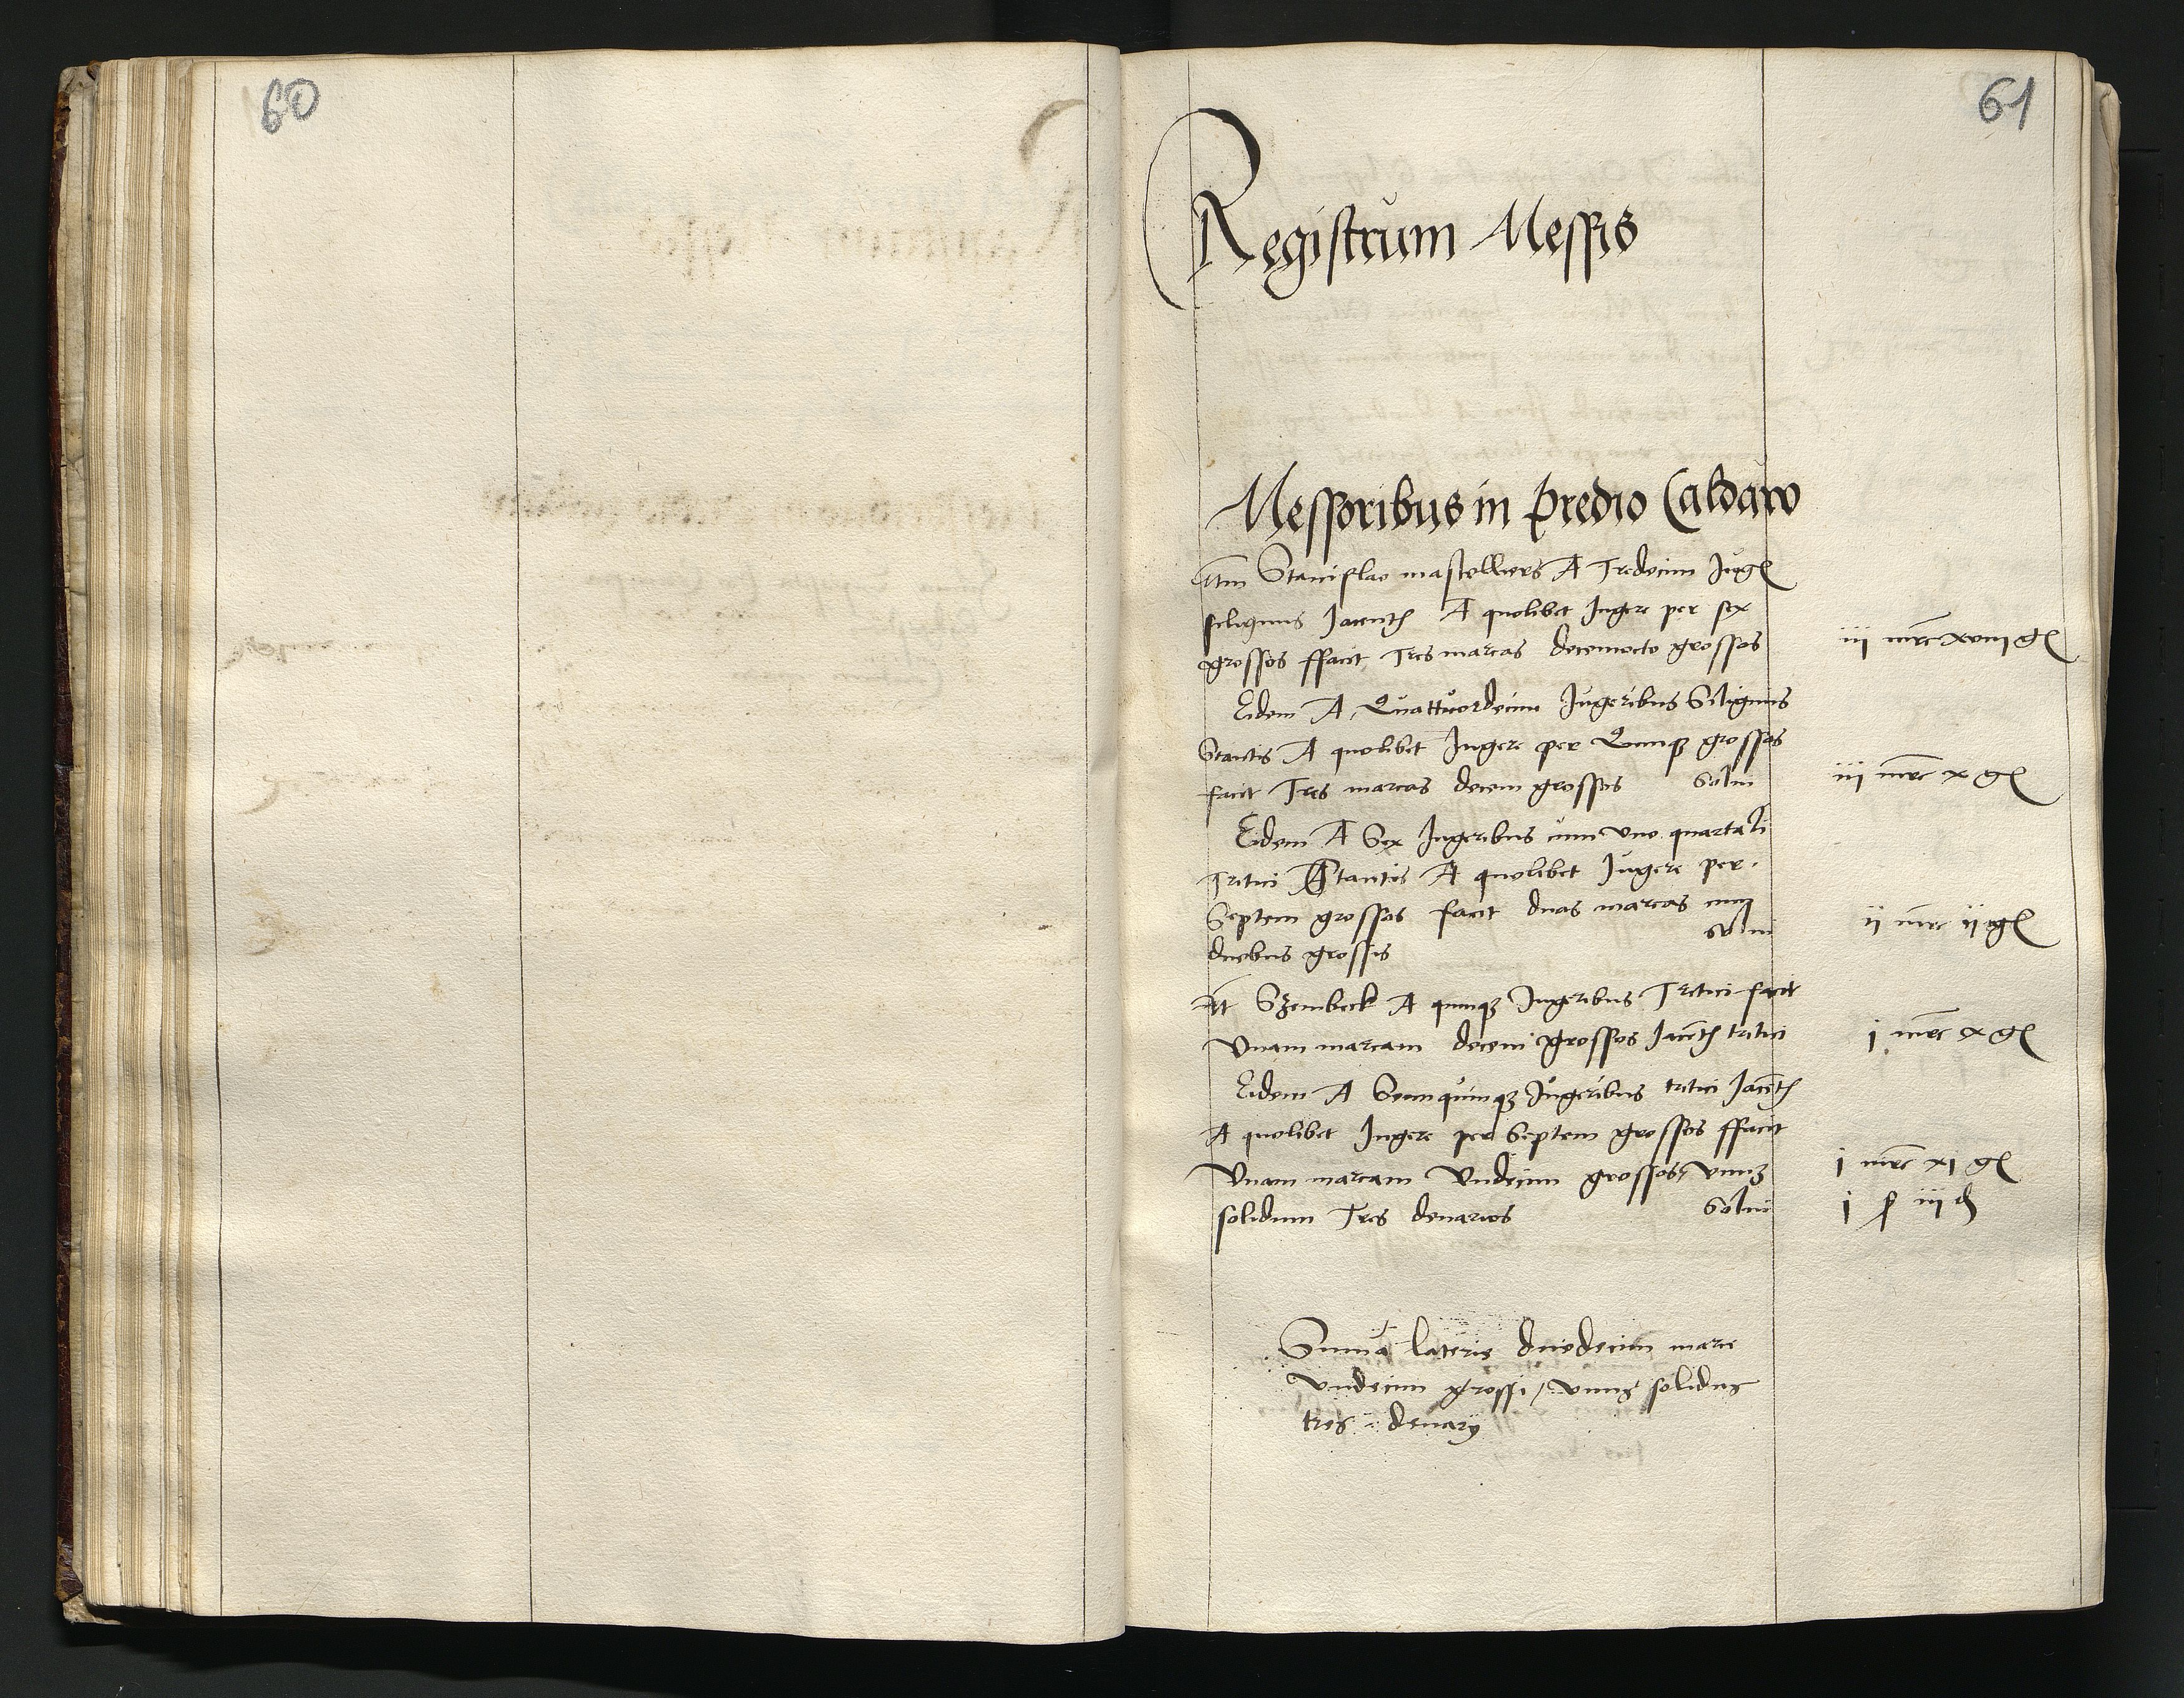 60
61
Registrum Messis
Messoribus in predio Caldaro
Itm Stanislao A Tredecim Jug
siliginis Jacent A quolibet Jugere per sex
grossos ffacit Tres marcas decemocto grossos
iii mrc xviii g
Eidem A Quattuordecim Jugeribus Siliginis
Stantis A quolibet Jugere per Quinq grossos
facit Tres marcas decem grossos Solui
iii mrc x g
Eidem A Sex Jugeribus cum vno quartali
Tritici Stantis A quolibet Jugere per
Septem grossos facit duas marcas cum
duobus grossis Solui
ii mrc ii g
It Szembeck A quinq Jugeribus Tritici facit
Vnam marcam decem grossos Jacent tritici
i mrc x g
Eidem A Jugeribus tritici Jacent
A quolibet Jugere per Septem grossos ffacit
Vnam marcam Vndecim grossos, vnu
solidum Tres denarios Solui
i mrc xi g
i ſ iii d
Suma lateris duedecim marce
vndecim grossi / vnus solidus
tres denarij